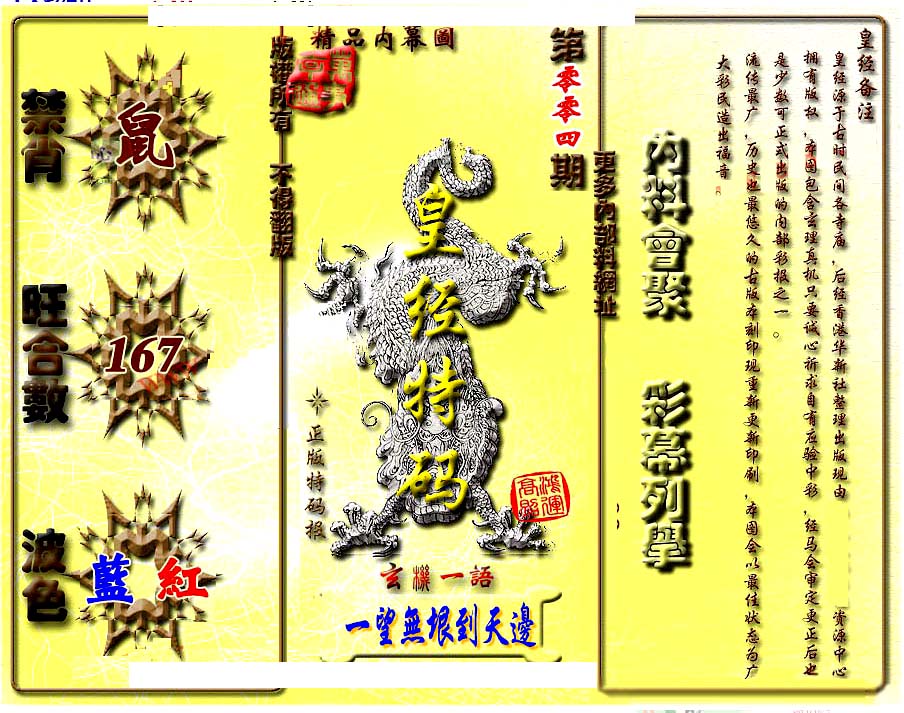 皇经备注
皇经源于古时民间各寺庙，后经香港华新社整理出版现由 资源中心
拥有版权，本图包含玄理真机只要诚心祈求自有应验中彩，经马会审定更正后也
是少数可正式出版的内部彩报之一。
流传最广，历史也最悠久的古版本刻印现重新更新印刷，本图会以最佳状态为广
大彩民造出福音
內料會聚
彩幕列舉
更多內部料網址
第零零四期
精品内幕圖
版權所有 不得翻版
皇经特码
正版特码报
鸿運
高照
玄機一語
一望無垠到天邊
禁肖
鼠
旺合數
167
波色
藍 紅